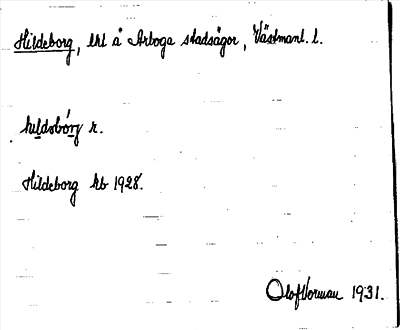 Hildeborg, lht å Arboga stadsägor, Västmanl. l.
hıldsbórg r.
Hildeborg kb 1928.
Olof Vorman 1931.